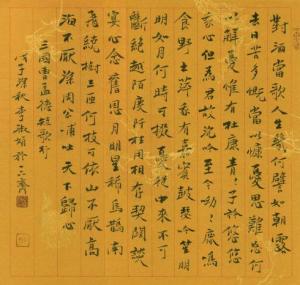 對酒當歌人生幾何譬如朝露
去日苦多慨當以慷憂思難忘何
以解憂唯有杜康青青子衿悠悠
我心但為君故沈吟至今呦呦鹿鳴
食野之苹我有嘉賓鼓瑟吹笙明
明如月何時可掇憂從中來不可
斷絕越陌度阡枉用相存契闊談
宴心念舊恩月明星稀烏鵲南
飛繞樹三匝何枝可依山不厭高
海不厭深周公吐哺天下歸心
三國曹孟德短歌行